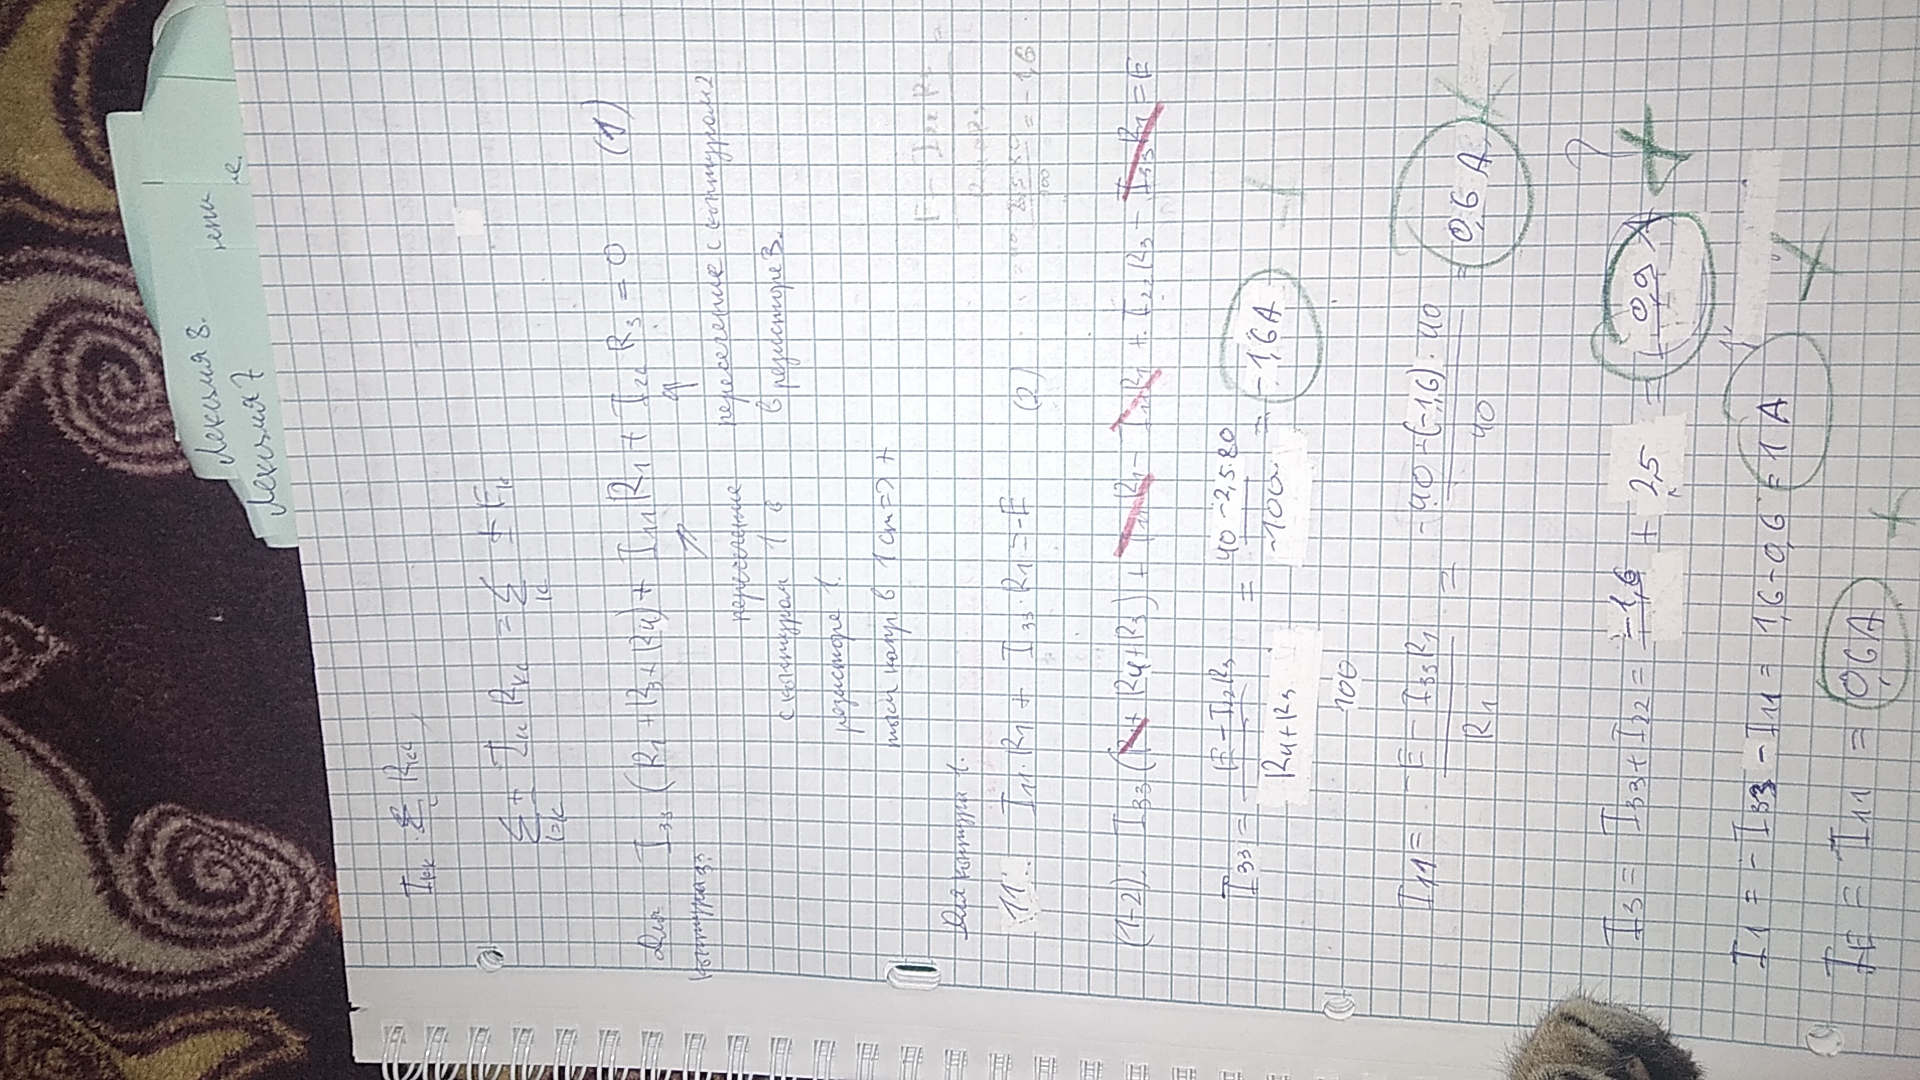 Лекция 8.
Лекция 7
I_кк · Σ R_кi,
Σ_{i=к} ± I_ii R_кi = Σ_к ± E_к
Для контура 33: I₃₃ (R₁ + R₃ + R₄) + I₁₁ R₁ + I₂₂ R₃ = 0 (1)
пересечение с контуром 1 в резисторе 1.
пересечение с контуром 2 в резисторе 3.
токи напр в 1 ст => +
Для контура 1.
11: I₁₁·R₁ + I₃₃·R₁ = -E (2)
= -1,6
(1-2). I₃₃ (R₁ + R₄ + R₃) + I₁₁R₁ - I₁₁R₁ + I₂₂R₃ - I₃₃R₁ = E
I₃₃ = (E - I₂₂R₃)/(R₄+R₃) = (40 - 2,5·80)/100 = -1,6 A
100
I₁₁ = (-E - I₃₃R₁)/R₁ = (-40 - (-1,6)·40)/40 = 0,6 A
?
I₃ = I₃₃ + I₂₂ = -1,6 + 2,5 = 0,9 A +
I₁ = -I₃₃ - I₁₁ = 1,6 - 0,6 = 1 A
I_E = I₁₁ = 0,6 A +